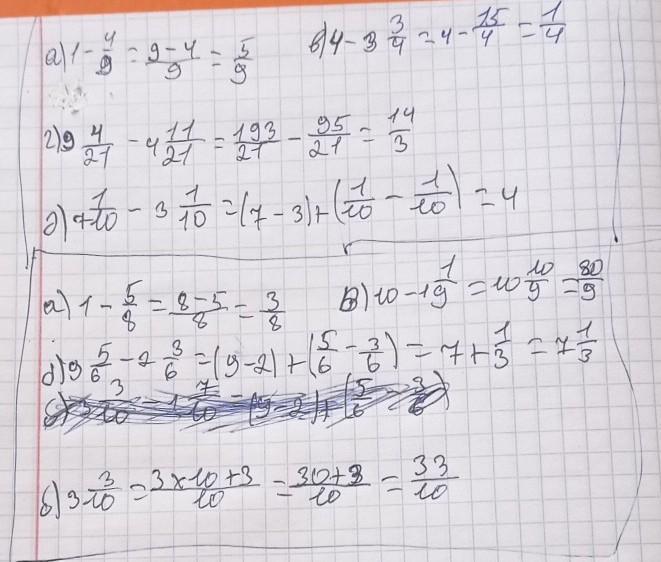 а) 1 - 4/9 = (9-4)/9 = 5/9   в) 4 - 3 3/4 = 4 - 15/4 = 1/4
г) 9 4/21 - 4 11/21 = 193/21 - 95/21 = 14/3
д) 7 1/10 - 3 1/10 = (7-3)+(1/10 - 1/10) = 4
а) 1 - 5/8 = (8-5)/8 = 3/8   в) 10 - 1 1/9 = 10 10/9 = 80/9
д) 9 5/6 - 2 3/6 = (9-2)+(5/6 - 3/6) = 7 + 1/3 = 7 1/3
б) 3 3/10 = (3×10+3)/10 = (30+3)/10 = 33/10